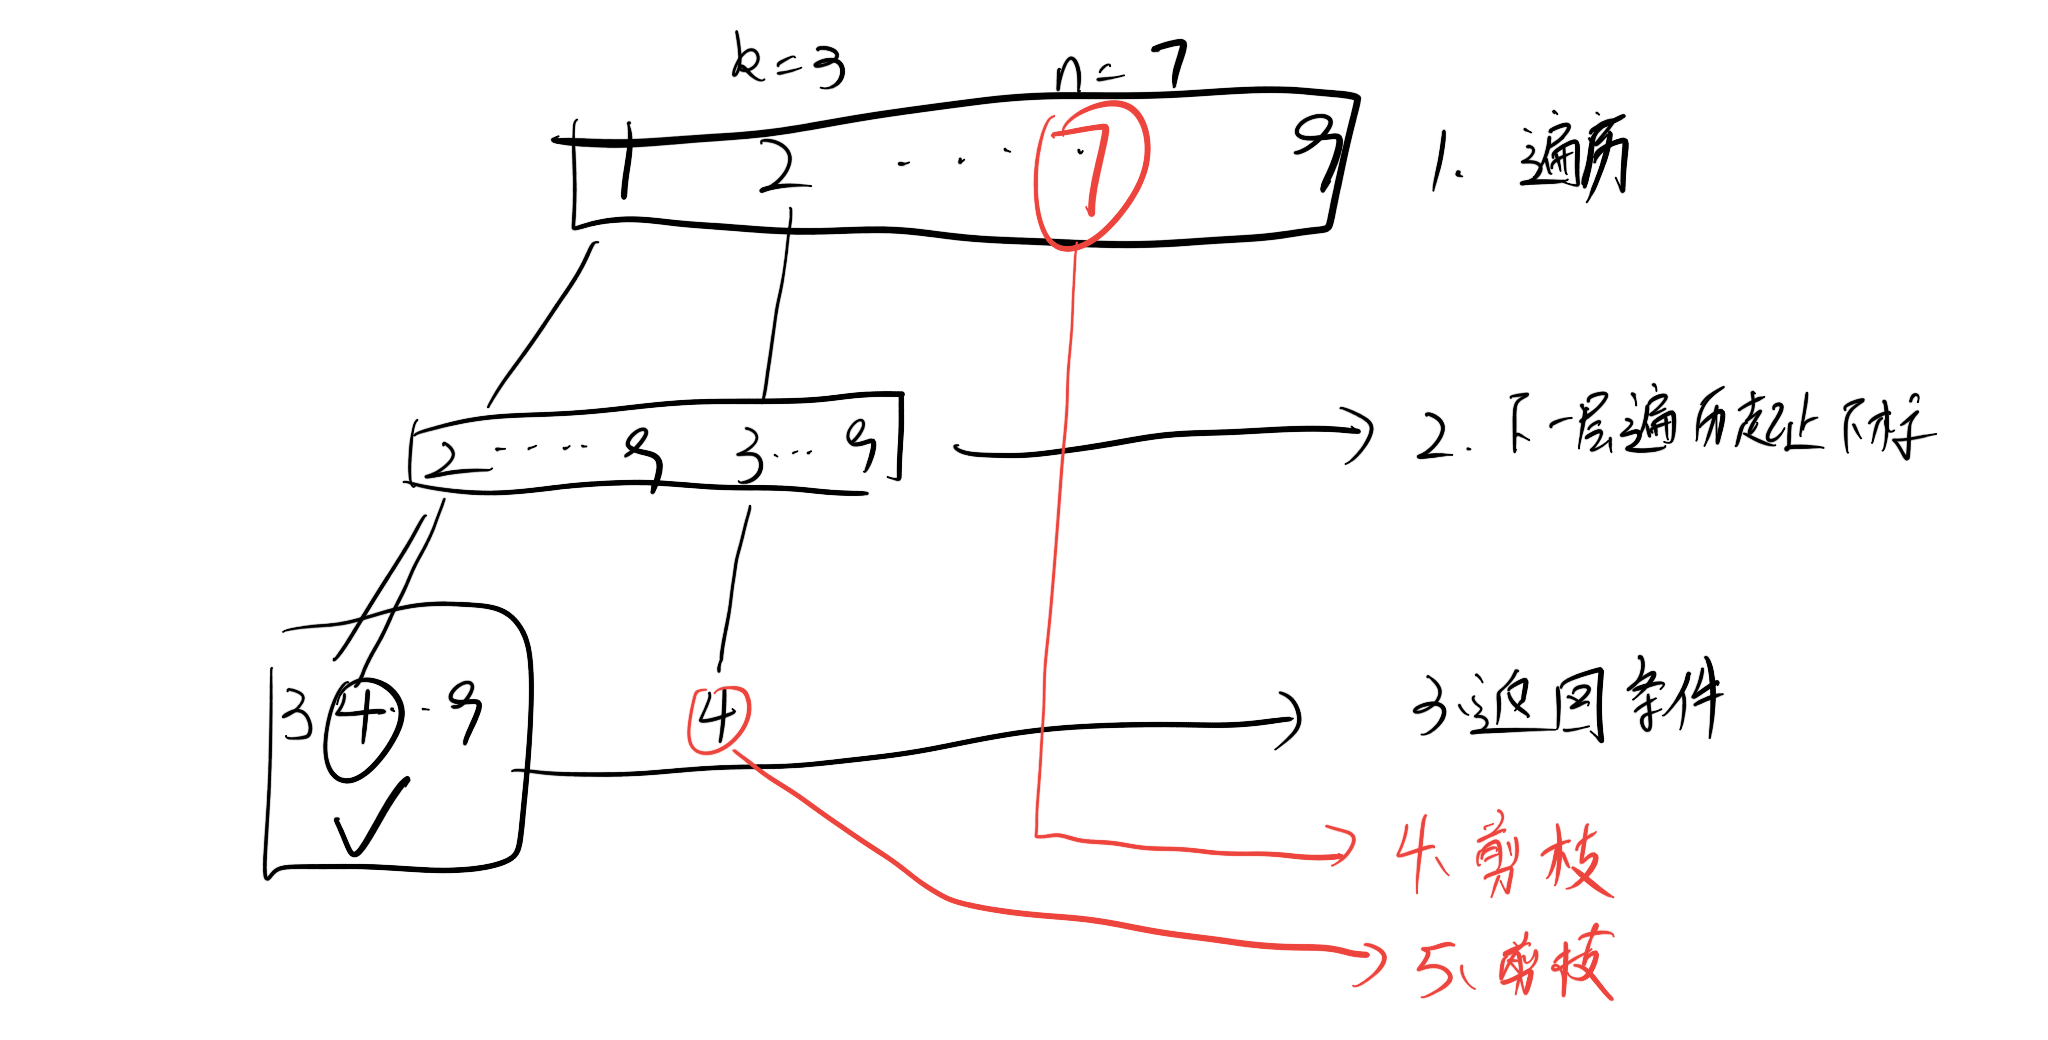 k=3 n=7
1 2 ····7 9 1. 遍历
2 ···· 9 3··· 9 2. 下一层遍历起止下标
3 4·· 9 4 3、返回条件
4、剪枝
5、剪枝